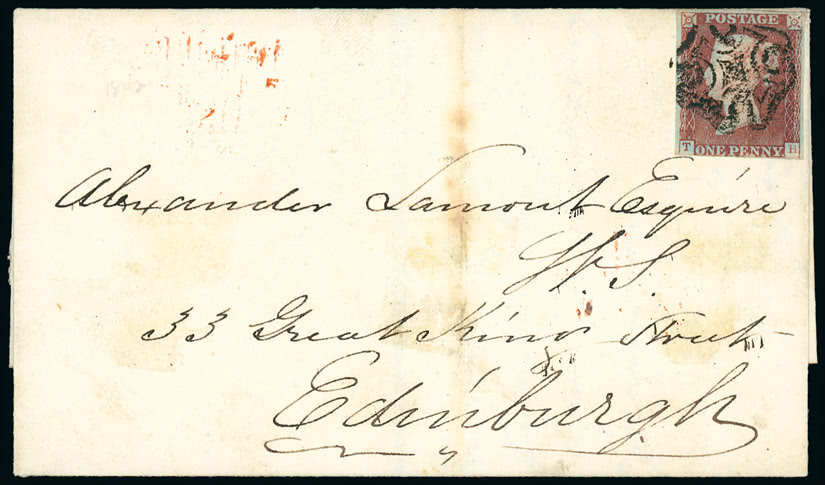 POSTAGE
T H
ONE PENNY.
1842
Alexander Lamont Esquire
W. S.
33 Great King Street
Edinburgh